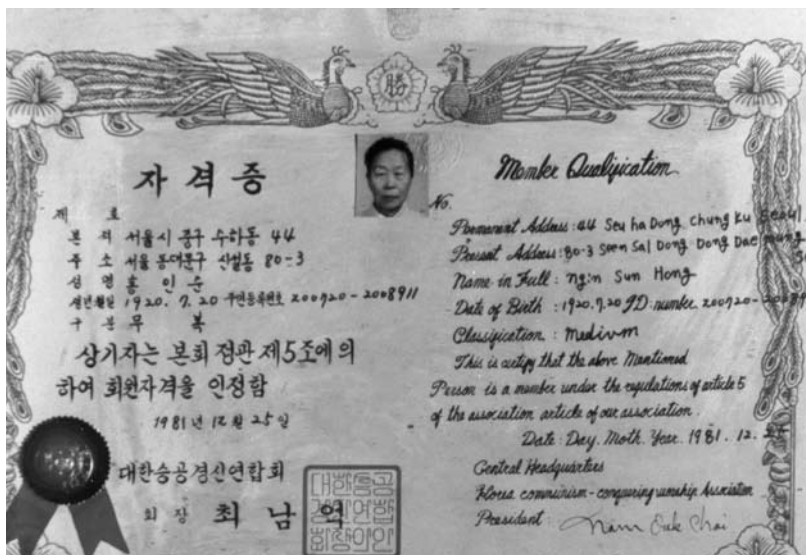 勝
자격증
제 호
본 적 서울시 중구 수하동 44
주 소 서울 동대문구 신설동 80-3
성 명 홍 인 순
생년월일 1920. 7. 20 주민등록번호 200720-2008911
구 분 무 복
상기자는 본회 정관 제5조에 의
하여 회원자격을 인정함
1981년 12월 25일
대한승공경신연합회
회 장 최 남 억
대한승공
경신연합
회장의인
Member Qualification
No.
Permanent Address: 44 Seu ha Dong Chung Ku Seoul
Present Address: 80-3 Seen Sal Dong Dong Dae mung
Name in Full : ngin Sun Hong
Date of Birth : 1920.7.20 JD: number. 200720-20089
Classification : Medium
This is certify that the above Mantioned
Person is a member under the regulations of article 5
of the association article of our association.
Date: Day. Moth. Year. 1981. 12.
Central Headquarters
Korea communism-conquering worship Association
President: Nam Euk Choi